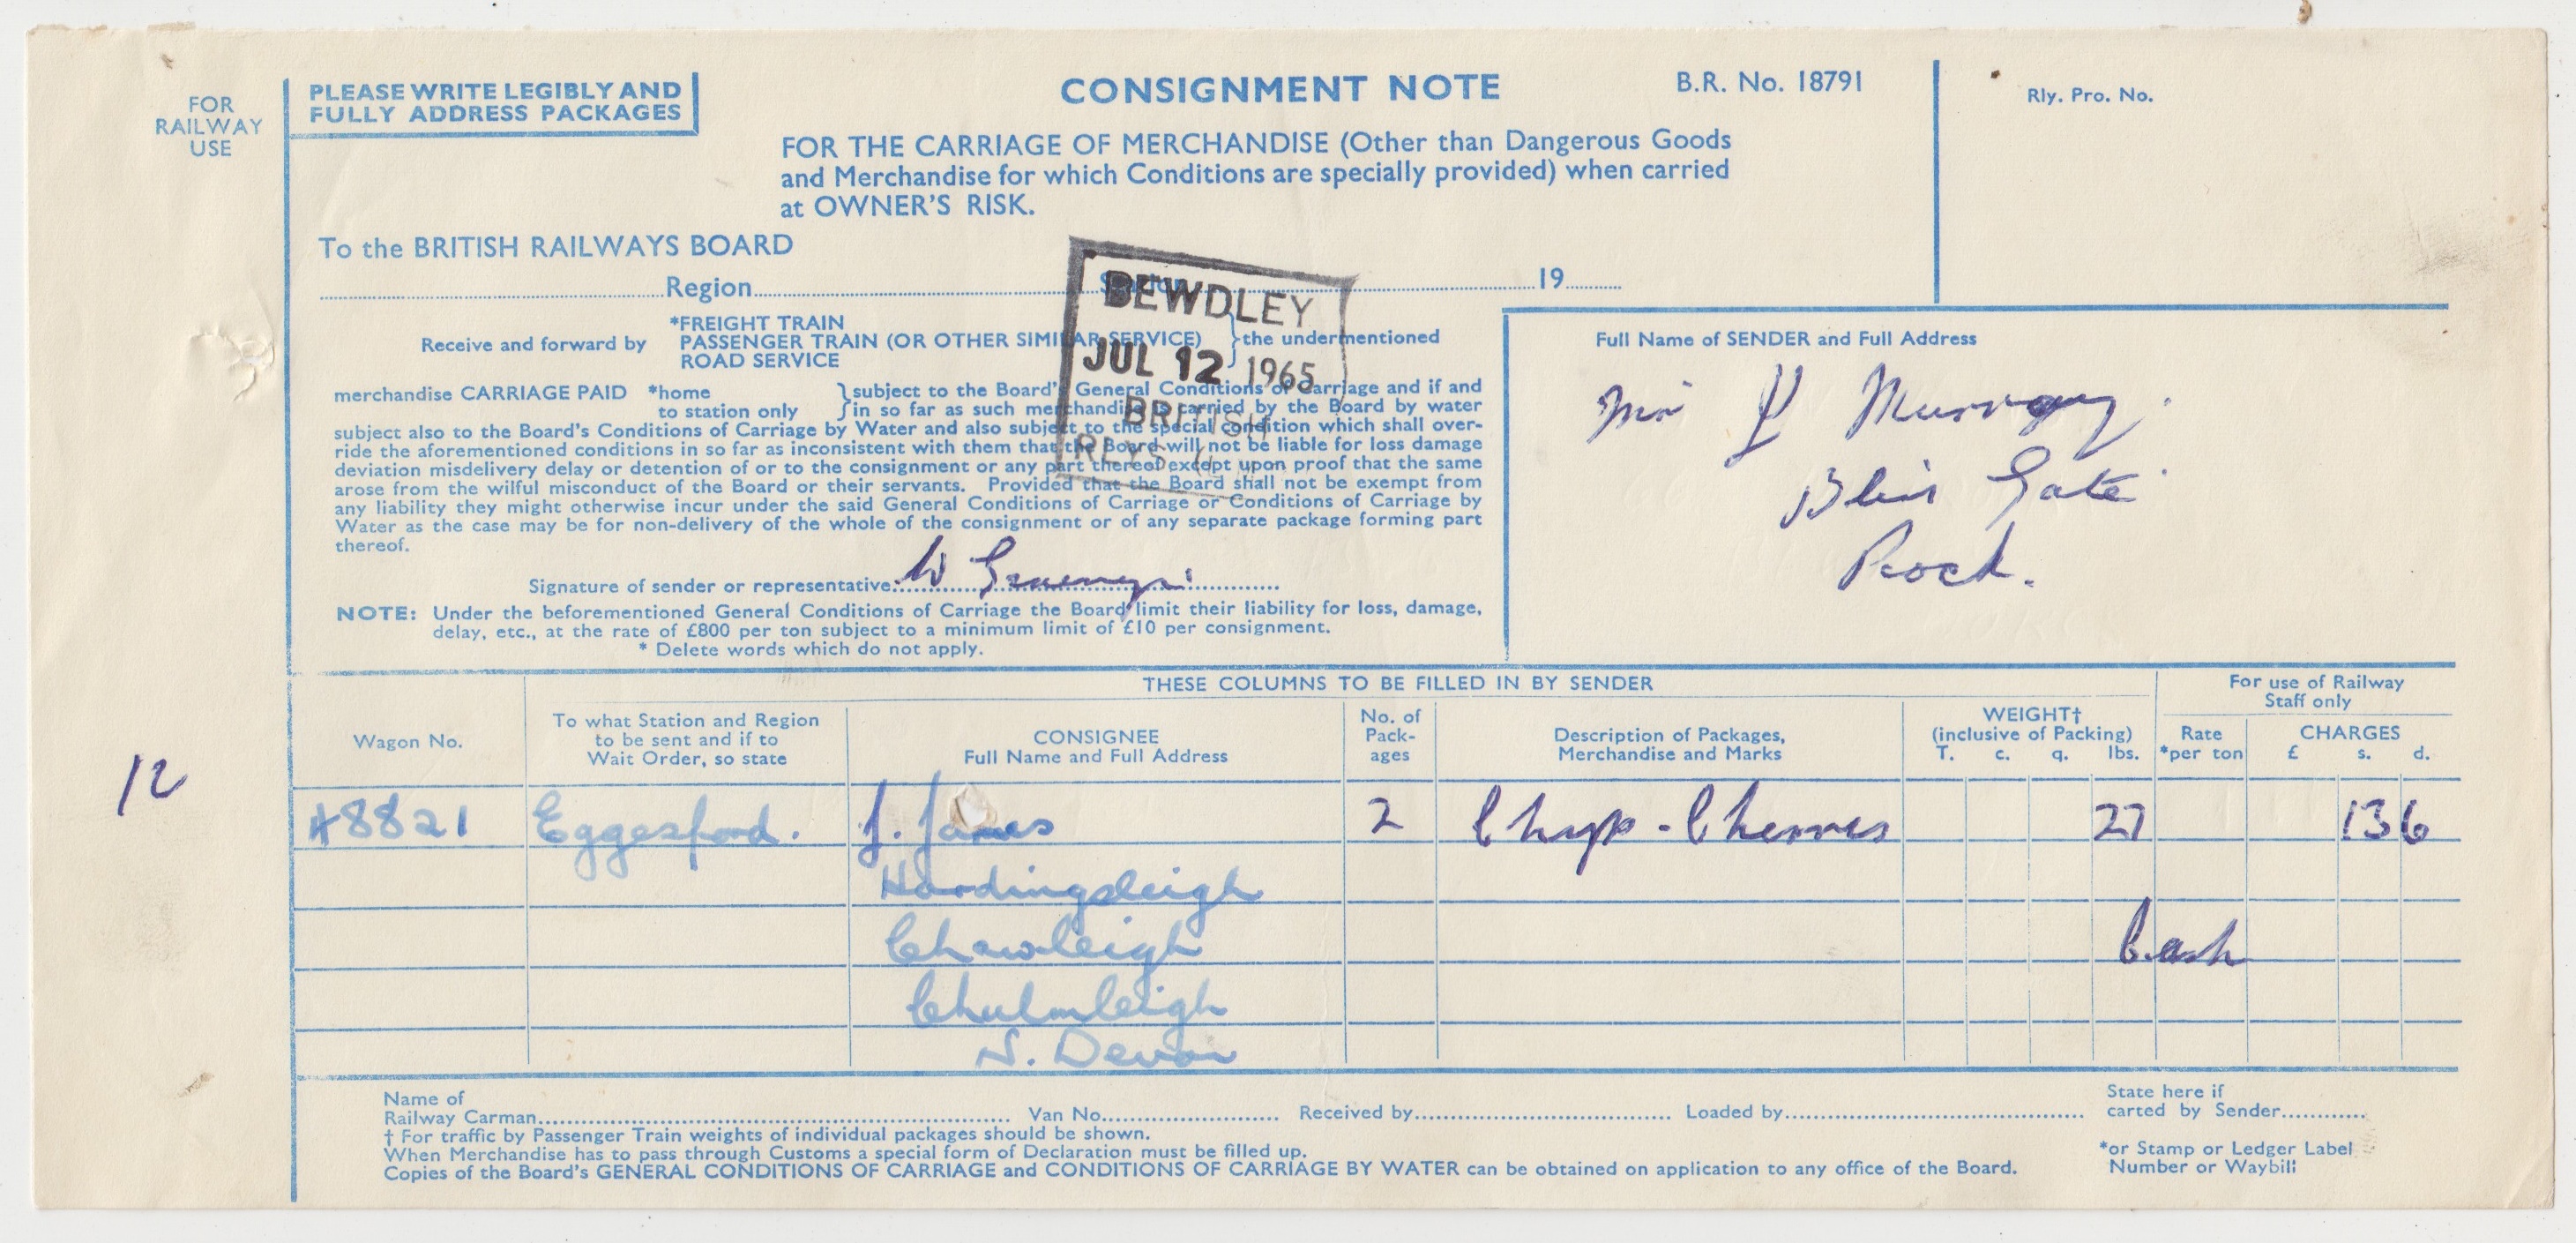 FOR
RAILWAY
USE
PLEASE WRITE LEGIBLY AND
FULLY ADDRESS PACKAGES
CONSIGNMENT NOTE
B.R. No. 18791
Rly. Pro. No.
FOR THE CARRIAGE OF MERCHANDISE (Other than Dangerous Goods
and Merchandise for which Conditions are specially provided) when carried
at OWNER'S RISK.
To the BRITISH RAILWAYS BOARD
Region Station 19
BEWDLEY
JUL 12 1965
BRITISH
RLYS
Receive and forward by
*FREIGHT TRAIN
PASSENGER TRAIN (OR OTHER SIMILAR SERVICE)
ROAD SERVICE
the undermentioned
merchandise CARRIAGE PAID *home
to station only
subject to the Board's General Conditions of Carriage and if and
in so far as such merchandise is carried by the Board by water
subject also to the Board's Conditions of Carriage by Water and also subject to the special condition which shall over-
ride the aforementioned conditions in so far as inconsistent with them that the Board will not be liable for loss damage
deviation misdelivery delay or detention of or to the consignment or any part thereof except upon proof that the same
arose from the wilful misconduct of the Board or their servants. Provided that the Board shall not be exempt from
any liability they might otherwise incur under the said General Conditions of Carriage or Conditions of Carriage by
Water as the case may be for non-delivery of the whole of the consignment or of any separate package forming part
thereof.
Signature of sender or representative W
NOTE: Under the beforementioned General Conditions of Carriage the Board limit their liability for loss, damage,
delay, etc., at the rate of £800 per ton subject to a minimum limit of £10 per consignment.
* Delete words which do not apply.
Full Name of SENDER and Full Address
Murray.
Gate
Rock.
THESE COLUMNS TO BE FILLED IN BY SENDER
For use of Railway
Staff only
Wagon No.
To what Station and Region
to be sent and if to
Wait Order, so state
CONSIGNEE
Full Name and Full Address
No. of
Pack-
ages
Description of Packages,
Merchandise and Marks
WEIGHT†
(inclusive of Packing)
T. c. q. lbs.
Rate
*per ton
CHARGES
£ s. d.
12
8821 Eggesford. J. James 2 Chyp - Cherries 27 13 6
Hardingsleigh
Chawleigh
Cash
Chulmleigh
N. Devon
Name of
Railway Carman Van No. Received by Loaded by
State here if
carted by Sender
† For traffic by Passenger Train weights of individual packages should be shown.
When Merchandise has to pass through Customs a special form of Declaration must be filled up.
Copies of the Board's GENERAL CONDITIONS OF CARRIAGE and CONDITIONS OF CARRIAGE BY WATER can be obtained on application to any office of the Board.
*or Stamp or Ledger Label
Number or Waybill